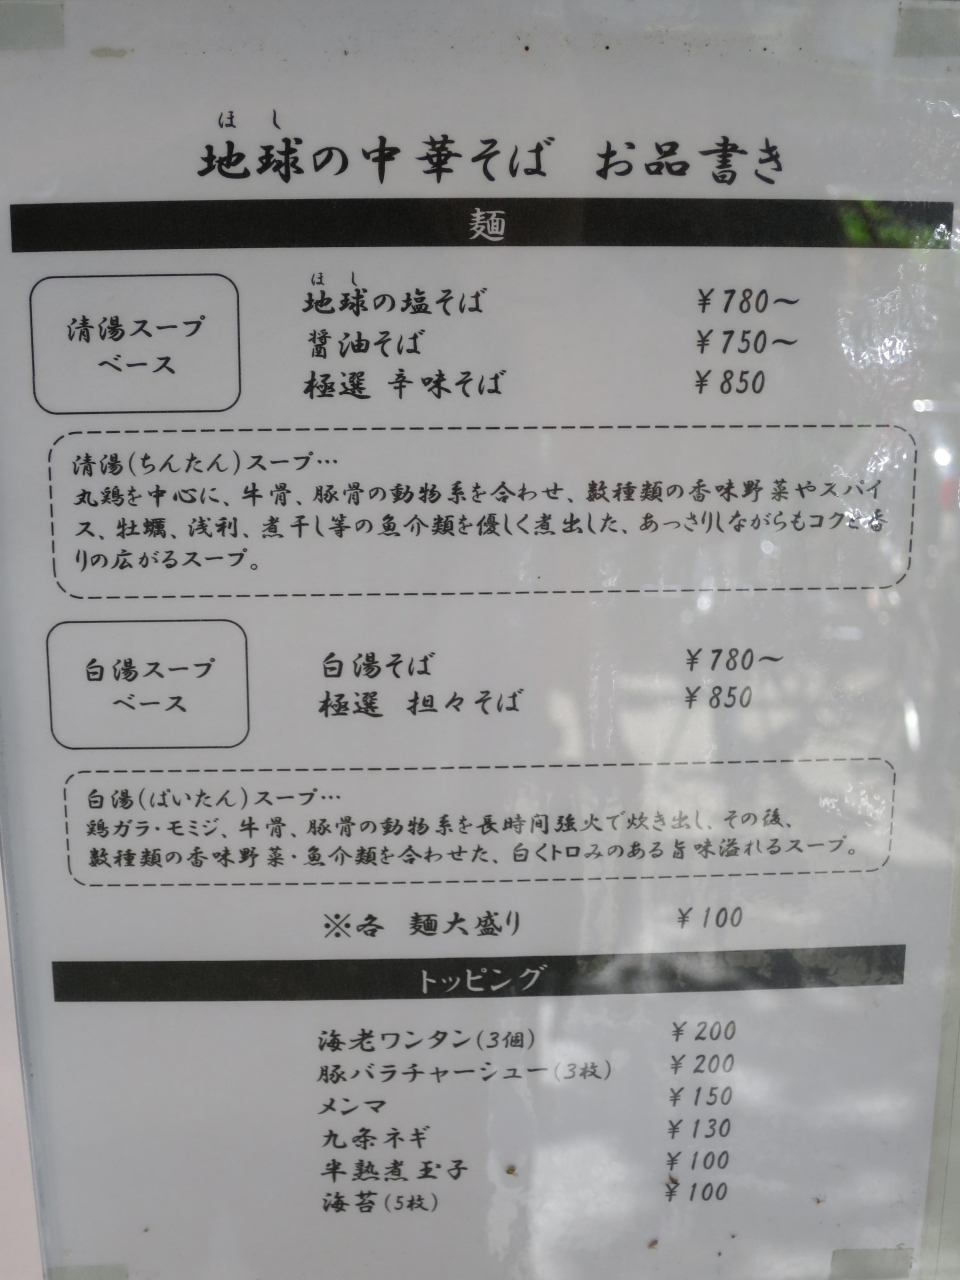 ほし
地球の中華そば お品書き
麺
清湯スープ
ベース
ほし
地球の塩そば ￥780～
醤油そば ￥750～
極選 辛味そば ￥850
清湯(ちんたん)スープ…
丸鶏を中心に、牛骨、豚骨の動物系を合わせ、数種類の香味野菜やスパイ
ス、牡蠣、浅利、煮干し等の魚介類を優しく煮出した、あっさりしながらもコクと香
りの広がるスープ。
白湯スープ
ベース
白湯そば ￥780～
極選 担々そば ￥850
白湯(ばいたん)スープ…
鶏ガラ・モミジ、牛骨、豚骨の動物系を長時間強火で炊き出し、その後、
数種類の香味野菜・魚介類を合わせた、白くトロみのある旨味溢れるスープ。
※各 麺大盛り ￥100
トッピング
海老ワンタン(3個) ￥200
豚バラチャーシュー(3枚) ￥200
メンマ ￥150
九条ネギ ￥130
半熟煮玉子 ￥100
海苔(5枚) ￥100